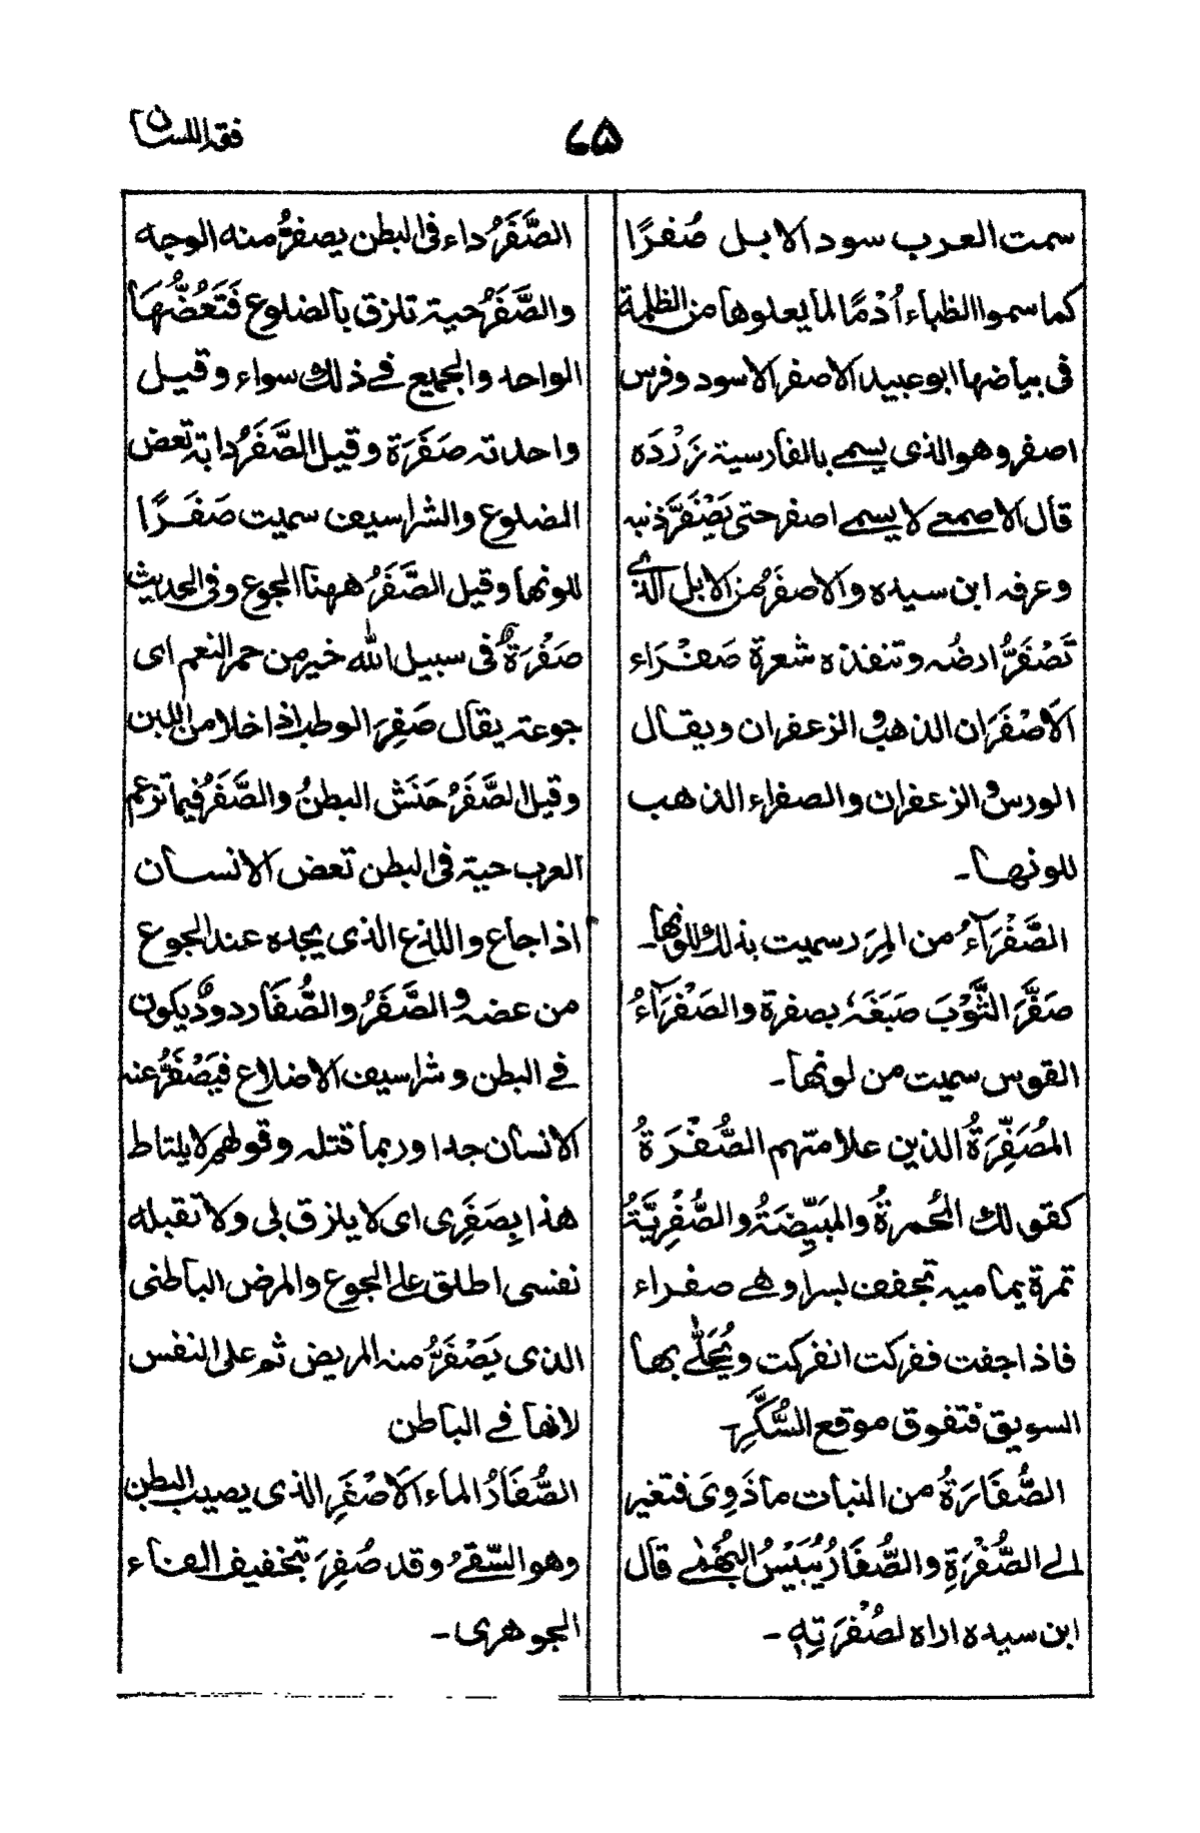 فقه اللسان
٦٥
سمت العرب سود الابل صُفرًا
كما سموا الظباء اُدْمًا لما يعلوها من الظلمة
فى بياضها ابو عبيد الاصفر الاسود وفرس
اصفر وهو الذى يسمے بالفارسية زَرْدَه
قال الاصمعے لا يسمے اصفر حتى يَصْفَرَّ ذنبه
وعرفه ابن سيده والاصفَرُ من الابل الذى
تَصْفَرُّ ارضُه وتنفذه شعرة صَفْرَاء
الَاصْفَرَان الذهب والزعفران ويقال
الورس والزعفران والصفراء الذهب
للونها۔
الصَّفْرَآءُ من المِرَر سميت بذلك للونها۔
صَفَّرَ الثَّوْبَ صَبَغَهٗ بصفرة والصَفْرَآءُ
القوس سميت من لونها۔
المُصَفِّرَةُ الذين علامتهم الصُّفْرَةُ
كقولك الحُمرةُ والمبَيِّضَةُ والصُّفْرِيَّةُ
تمرة يمامية تجفف لبسرا وهے صفراء
فاذا جفت ففركت انفركت ويُحَلّٰے بها
السويق فتفوق موقع السُّكَّرِ۔
الصُّفَارَةُ من النبات ما ذَوِىَ فتغير
الے الصُّفْرَةِ والصُّفَارُ يُبَيْسُ البُهْمٰے قال
ابن سيده اراه لصُفْرَتِهٖ۔
الصَّفَرُ داء فى البطن يصفرُّ منه الوجه
والصَّفَرُ حية تلزق بالضلوع فَتَعُضُّهَا
الواحد والجميع فے ذلك سواء وقيل
واحدته صَفَرَة وقيل الصَّفَرُ دابة تعض
الضلوع والشراسيف سميت صَفَرًا
للونها وقيل الصَّفَرُ ههنا الجوع وفى الحديث
صَفْرَةٌ فى سبيل الله خير من حمر النعم اى
جوعة يقال صَفِرَ الوطب اذا خلا من اللبن
وقيل الصَّفَرُ حَنَش البطنُ والصَّفَرُ فيما تزعم
العرب حية فى البطن تعض الانسان
اذا جاع واللذع الذى يجده عند الجوع
من عضه والصَّفَرُ والصُّفَار دودٌ يكون
فے البطن وشراسيف الاضلاع فيَصْفَرُّ عنه
الانسان جدا وربما قتله وقولهم لا يلتاط
هذا بِصَفَرِى اى لا يلزق بى ولا تقبله
نفسى اطلق علے الجوع والمرض الباطنى
الذى يَصْفَرُّ منه المريض ثم على النفس
لانها فے الباطن
الصُّفَارُ الماء الَاصْفَرِ الذى يصيب البطن
وهو السّقےُ وقد صُفِرَ بتخفيف الفاء
الجوهرى۔